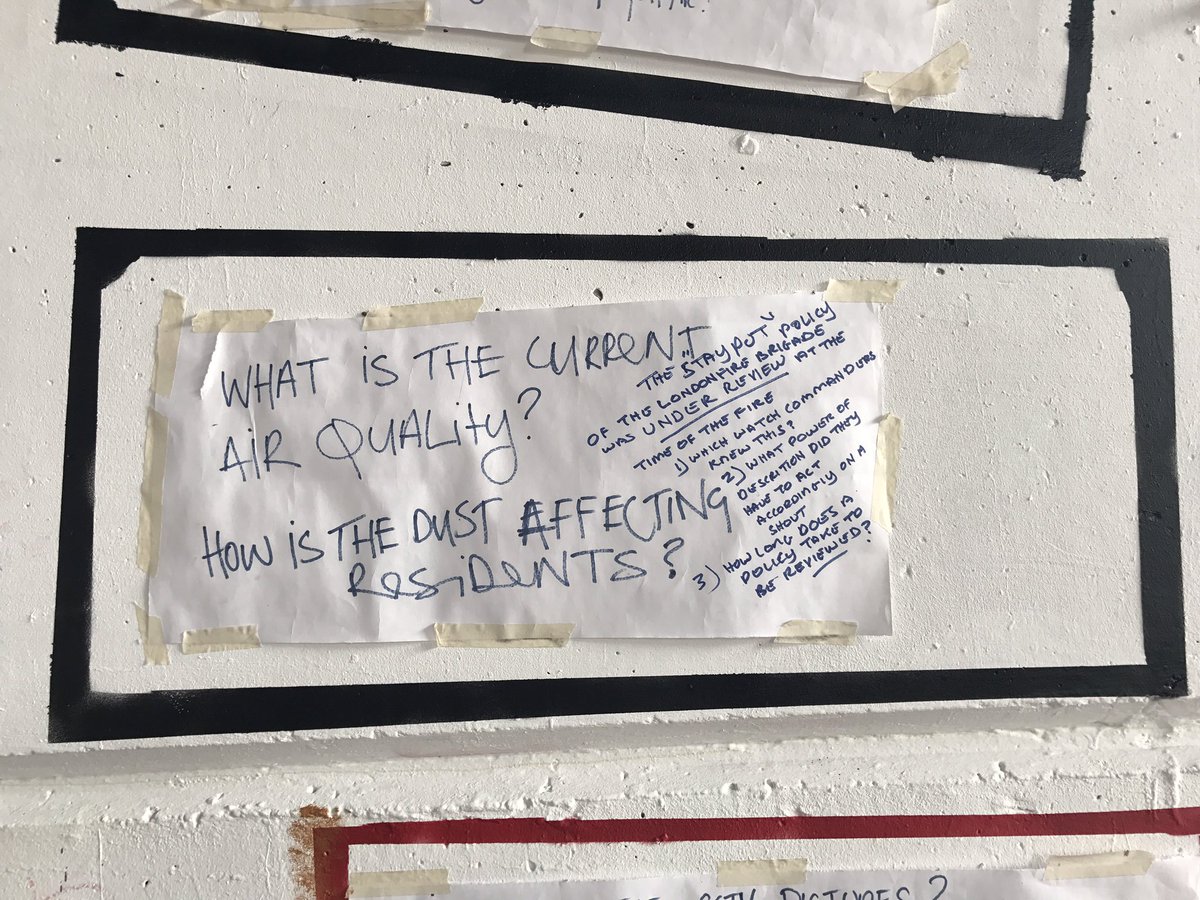 WHAT iS THE CURRENT
AiR QUALity?
HOW iS THE DUST AFFECTING
ResiDeNTS?
THE "STAY PUT" POLICY
OF THE LONDON FIRE BRIGADE
WAS UNDER REVIEW AT THE
TIME OF THE FIRE
1) WHICH WATCH COMMANDERS
KNEW THIS?
2) WHAT POWER OF
DESCRITION DID THEY
HAVE TO ACT
ACCORDINGLY ON A
SHOUT
3) HOW LONG DOES A
POLICY TAKE TO
BE REVIEWED?
PICTURES?